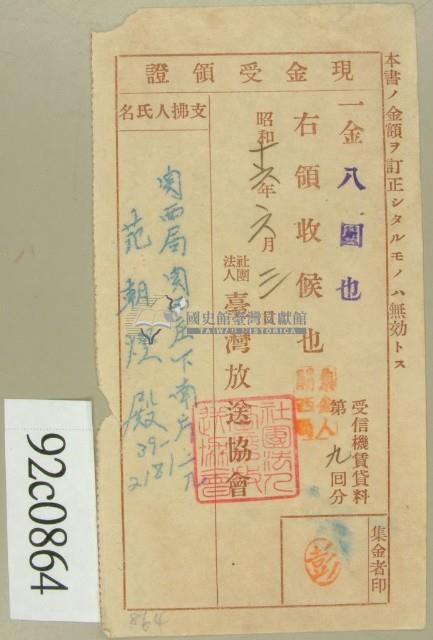 本書ノ金額ヲ訂正シタルモノハ無効トス
現金受領證
一金八圓也
右領收候也
受信機賃貸料
第九回分
集金者印
彭
昭和十六年六月三日
社團法人
臺灣放送協會
支拂人氏名
関西局関西庄下南片
范朝燈殿
39-
2181
國史館臺灣文獻館
TAIWAN HISTORICA
92c0864
864